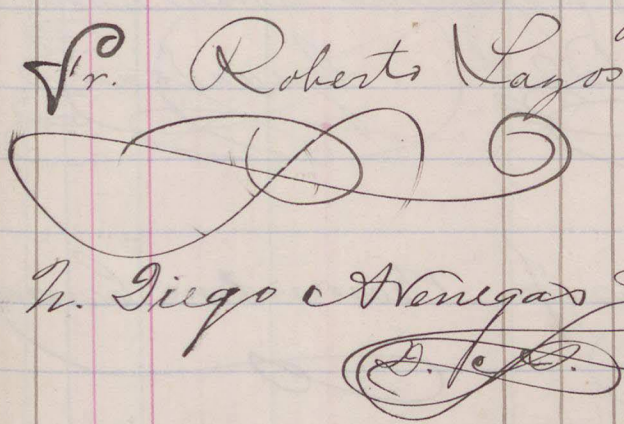 Fr. Roberto Lagos
N. Diego Avenegas